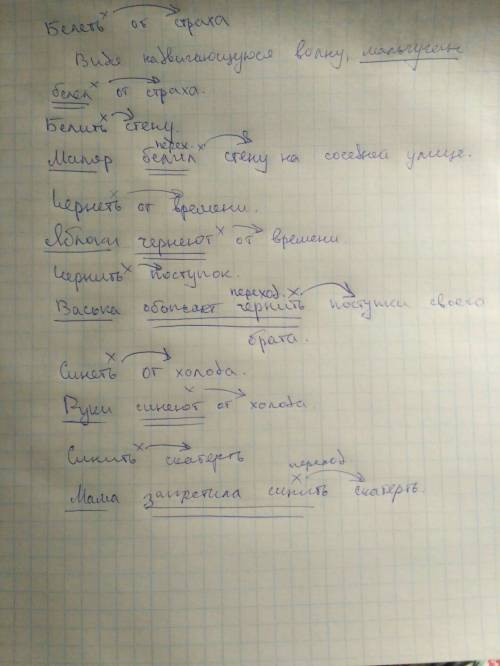 Белеть x от страха
Видя надвигающуюся волну, мальчуган
белел x от страха.
Белить x стену.
перех.
Маляр белил x стену на соседней улице.
Чернеть x от времени.
Яблоки чернеют x от времени.
Чернить x поступок.
переход. x
Васька обожает чернить поступки своего
брата.
Синеть x от холода.
Руки синеют x от холода
Синить x скатерть
переход.
Мама запретила синить x скатерть.